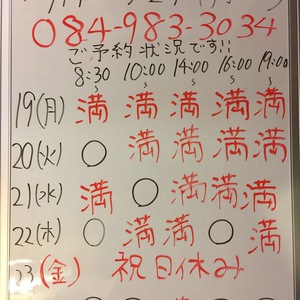 084-983-3034
ご予約状況です!!
8:30~ 10:00~ 14:00~ 16:00~ 19:00~
19(月) 満 満 満 満 満
20(火) ○ 満 満 満 満
21(水) 満 ○ 満 満 満
22(木) ○ 満 満 ○ 満
23(金) 祝日休み